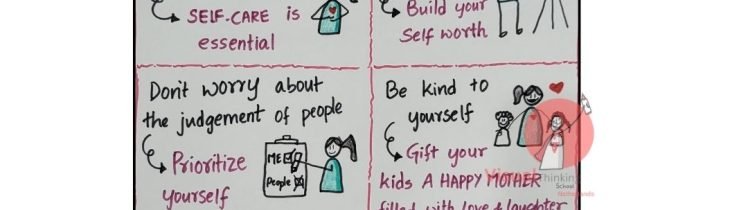 SELF-CARE is
essential
Build your
Self worth
Don't worry about
the judgement of people
Prioritize
yourself
ME
People
Be kind to
yourself
Gift your
kids A HAPPY MOTHER
filled with love & laughter
Visual Thinking
School
Netherlands